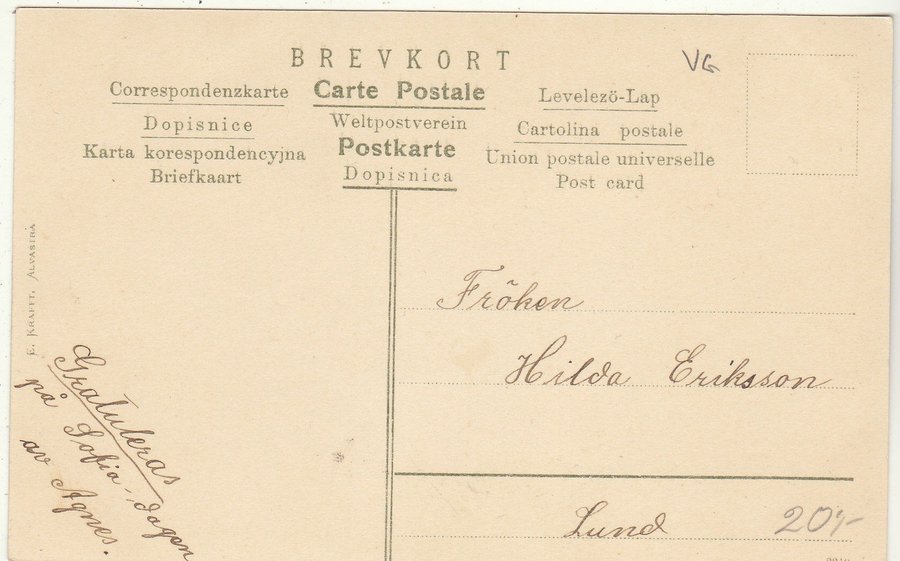 BREVKORT
VG
Correspondenzkarte
Carte Postale
Levelezö-Lap
Dopisnice
Weltpostverein
Cartolina postale
Karta korespondencyjna
Postkarte
Union postale universelle
Briefkaart
Dopisnica
Post card
E. KRAFFT, ALVASTRA
Fröken
Hilda Eriksson
Lund
20:-
Gratuleras
på Sofia-dagen
av Agnes.